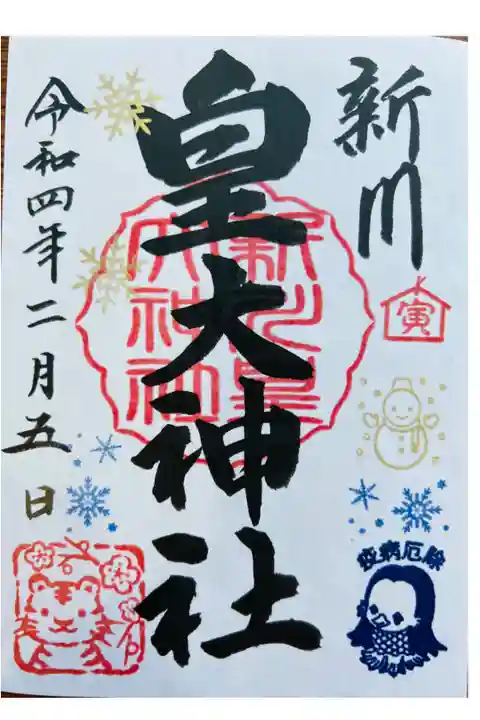 新川
皇大神社
令和四年二月五日
寅
疫病厄除
新川皇
大神社